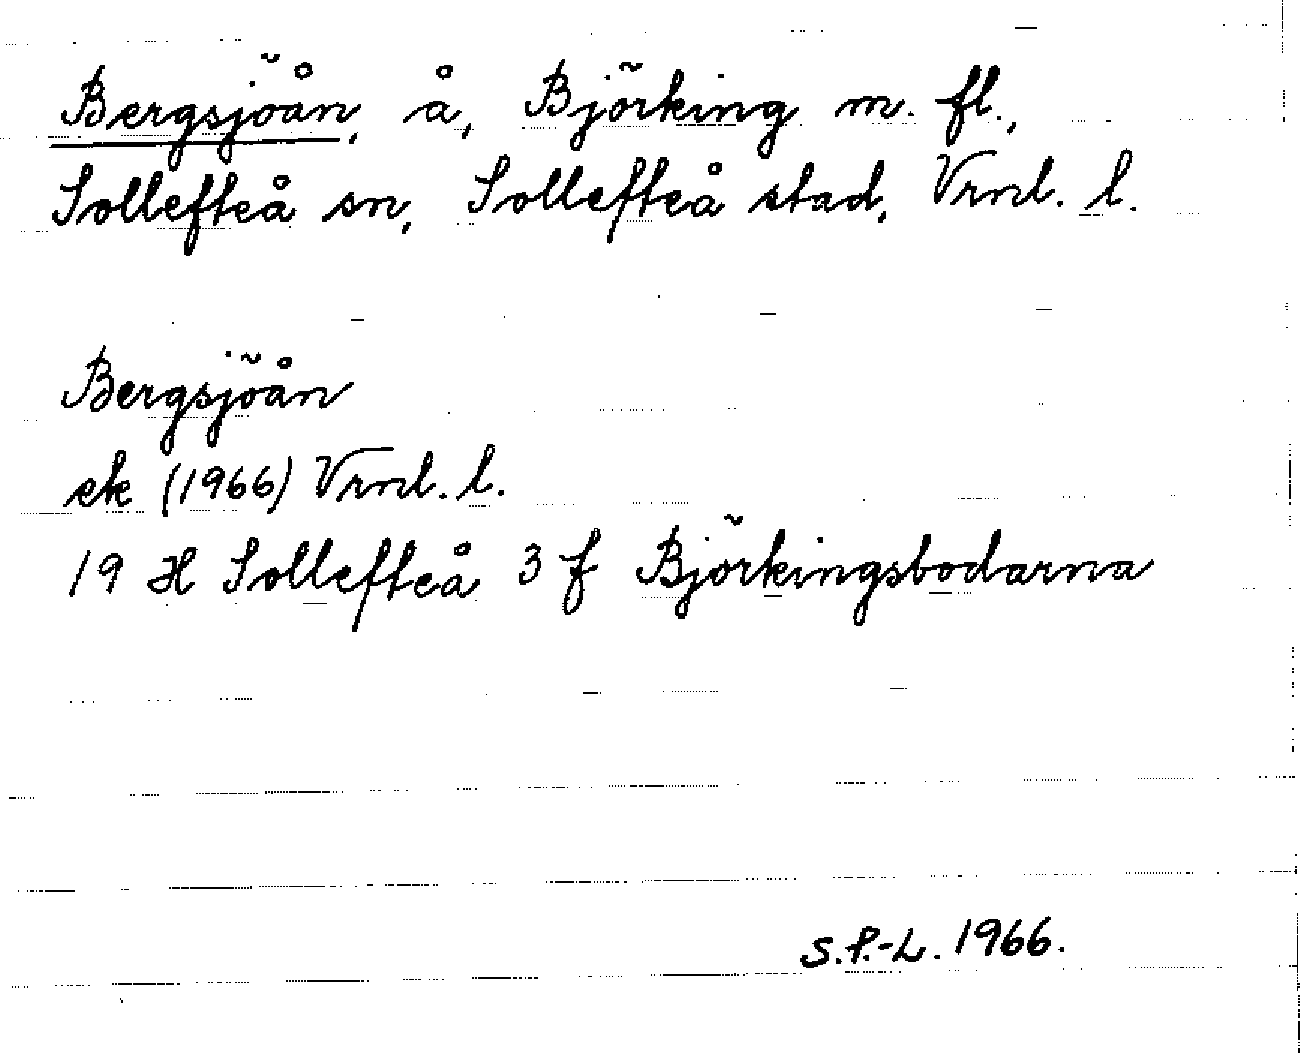 Bergsjöån, å, Björking m. fl.,
Sollefteå sn, Sollefteå stad, Vrnl. l.
Bergsjöån
ek (1966) Vrnl. l.
19 H Sollefteå 3 f Björkingsbodarna
S.P.-L. 1966.